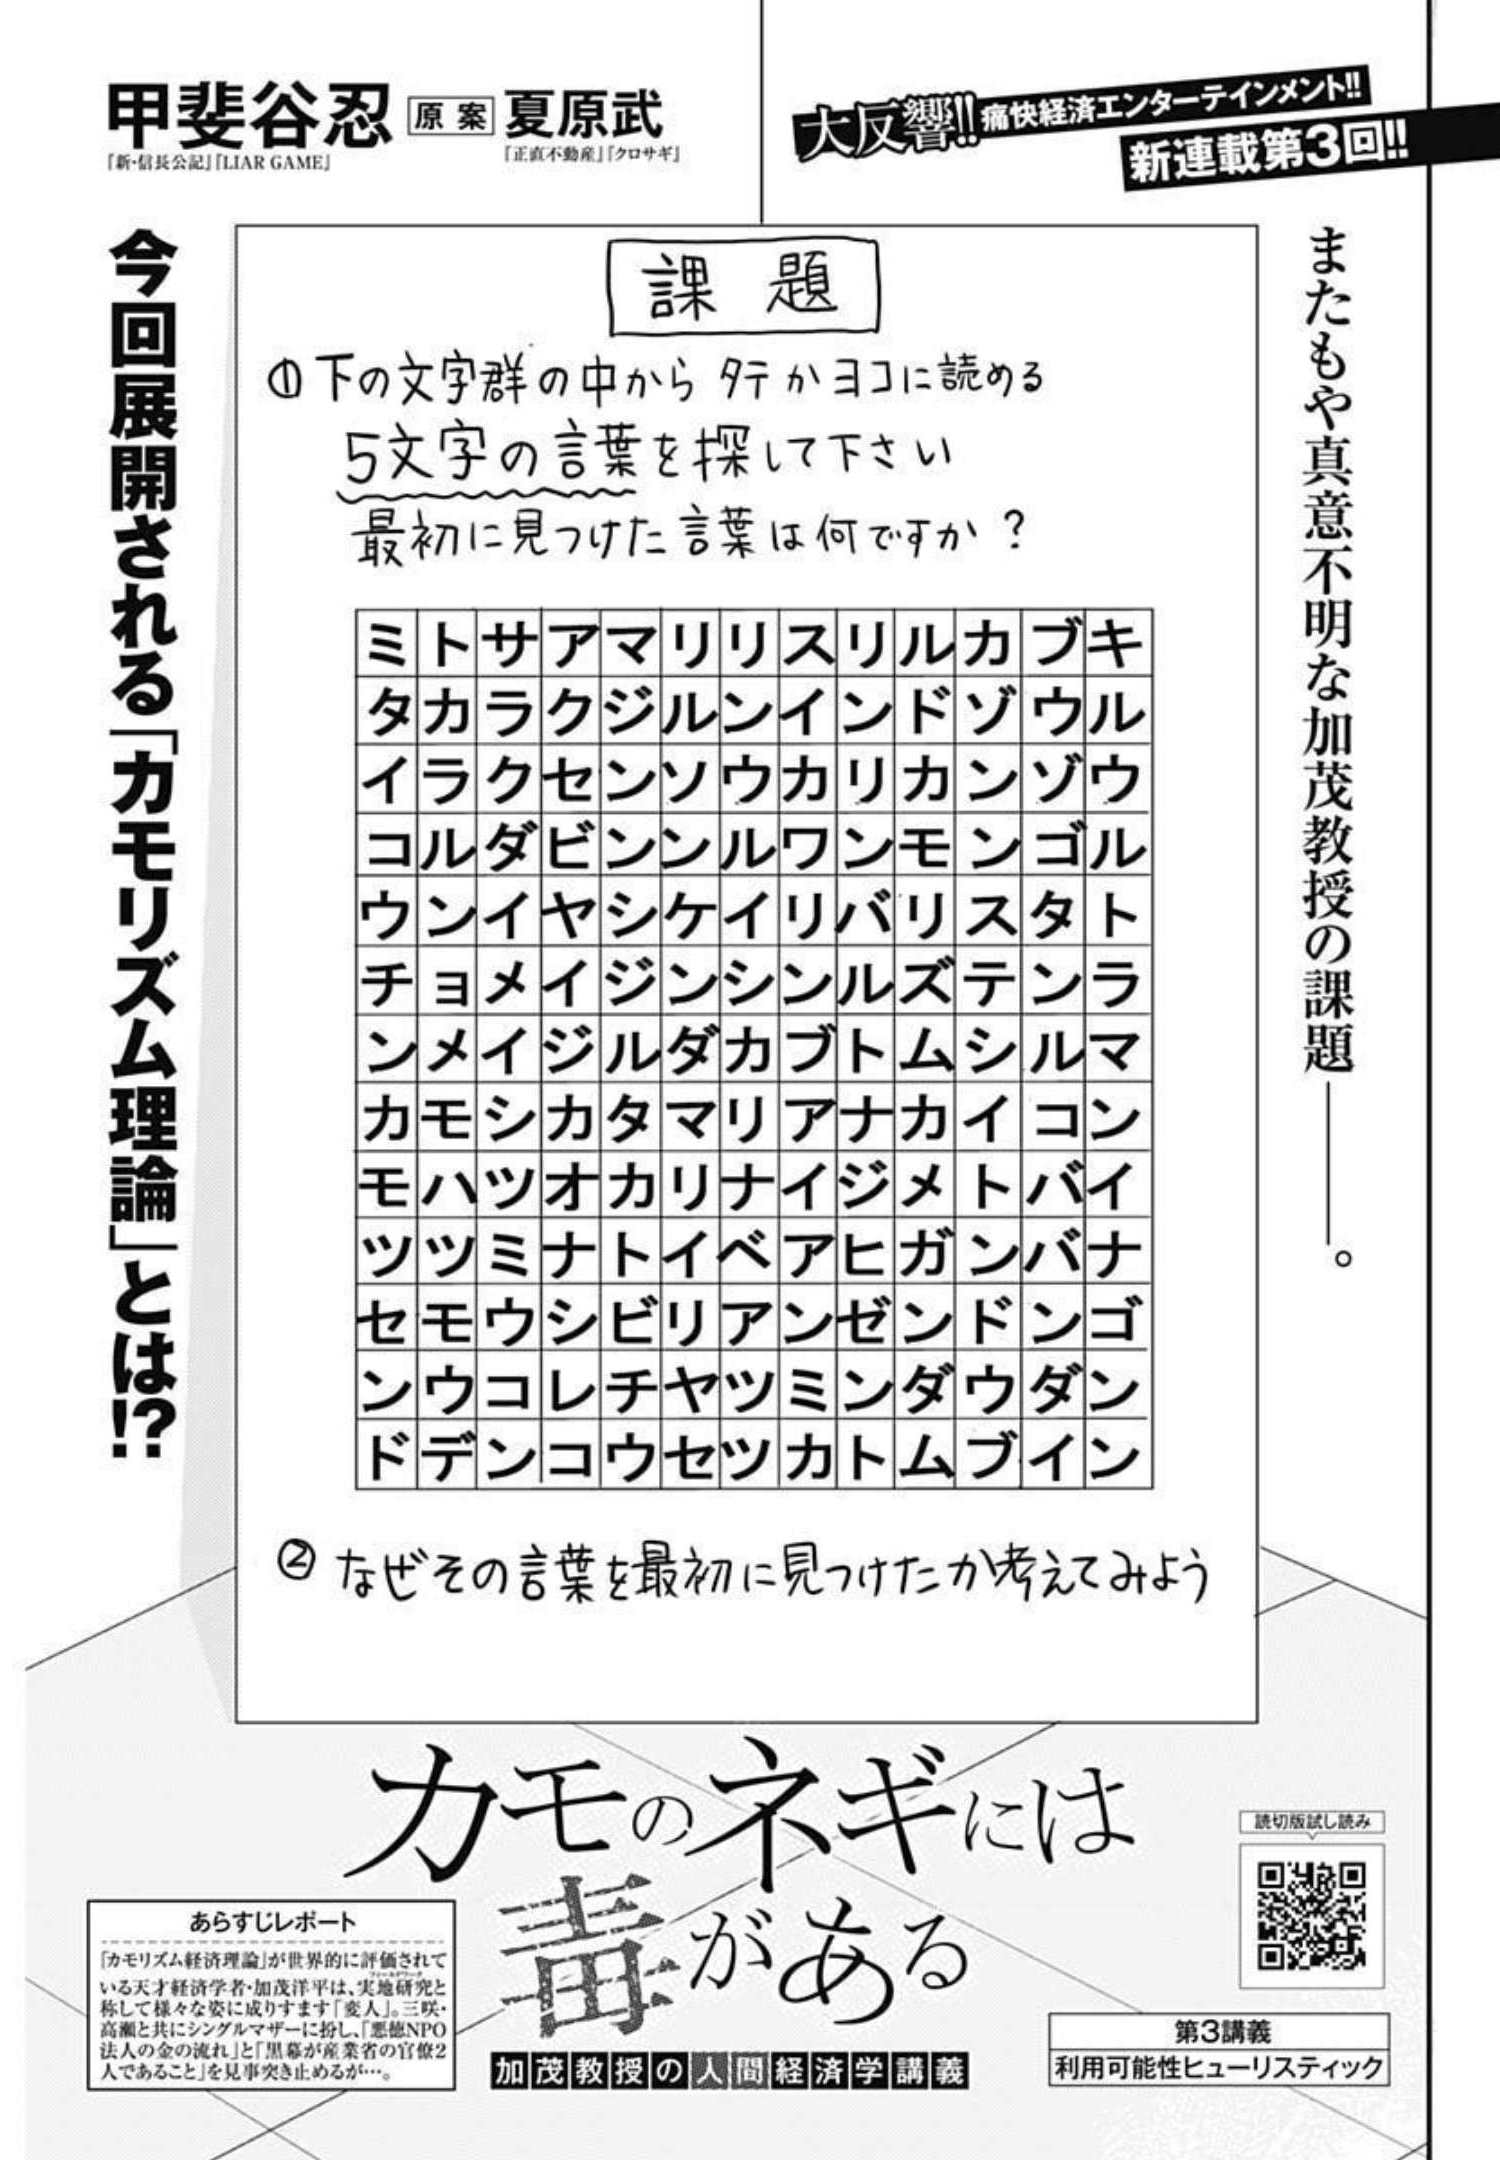 大反響!! 痛快経済エンターテインメント!!
新連載第3回!!
甲斐谷忍
『新・信長公記』『LIAR GAME』
原案 夏原武
『正直不動産』『クロサギ』
またもや真意不明な加茂教授の課題――。
課題
①下の文字群の中からタテかヨコに読める
5文字の言葉を探して下さい
最初に見つけた言葉は何ですか？
ミトサアマリリスリルカブキ
タカラクジルンインドゾウル
イラクセンソウカリカンゾウ
コルダビンンルワンモンゴル
ウンイヤシケイリバリスタト
チョメイジンシンルズテンラ
ンメイジルダカブトムシルマ
カモシカタマリアナカイコン
モハツオカリナイジメトバイ
ツツミナトイベアヒガンバナ
セモウシビリアンゼンドンゴ
ンウコレチヤツミンダウダン
ドデンコウセツカトムブイン
②なぜその言葉を最初に見つけたか考えてみよう
今回展開される「カモリズム理論」とは!?
カモのネギには
毒がある
加茂教授の人間経済学講義
読切版試し読み
第3講義
利用可能性ヒューリスティック
あらすじレポート
「カモリズム経済理論」が世界的に評価されて
いる天才経済学者・加茂洋平は、実地研究と
称して様々な姿に成りすます「変人」。三咲・
高瀬と共にシングルマザーに扮し、「悪徳NPO
法人の金の流れ」と「黒幕が産業省の官僚2
人であること」を見事突き止めるが…。